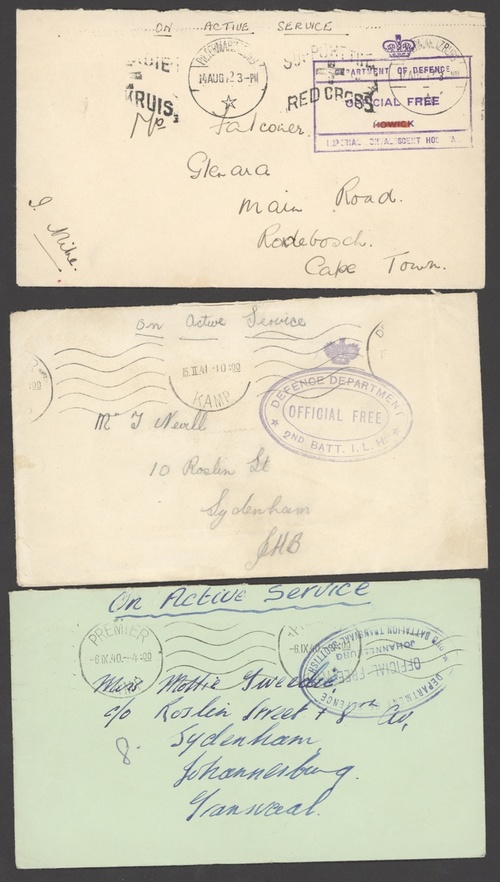 ON ACTIVE SERVICE
14 AUG 42 3-PM
KRUIS
SUPPORT THE
RED CROSS
DEPARTMENT OF DEFENCE
OFFICIAL FREE
HOWICK
Falconer
Glenara
Main Road.
Rodebosch.
Cape Town.
On Active Service
15.II.41 -10
KAMP
DEFENCE DEPARTMENT
OFFICIAL FREE
2ND BATT. I. L. H.
Mr J Nevill
10 Roslin St
Sydenham
JHB
On Active Service
PREMIER
-6.IX.40.--4-
-6.IX.40
DEFENCE DEPARTMENT
OFFICIAL FREE
JOHANNESBURG
BATTALION TRANSVAAL SCOTTISH
Miss Mollie Tweedie,
c/o Roslin Street + 8th Av,
8.
Sydenham
Johannesburg.
Transvaal.